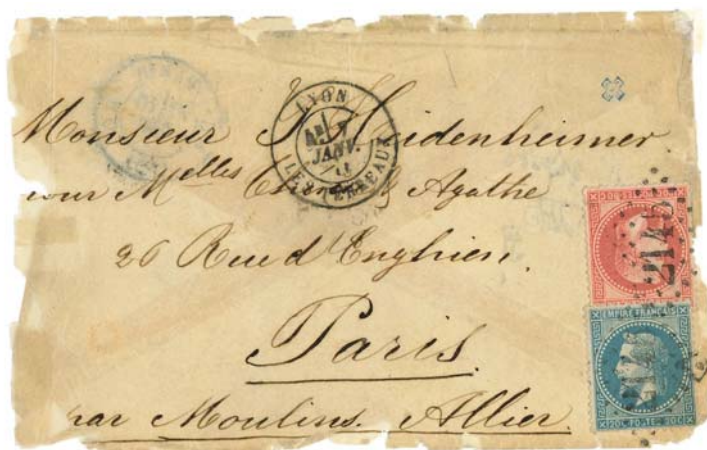 LYON
JANV.
(LES TERREAUX)
Monsieur J. Heidenheimer
pour Melles & Agathe
26 Rue d'Enghien.
Paris.
par Moulins. Allier.
2145
EMPIRE FRANÇAIS
2145
20C POSTE 20C